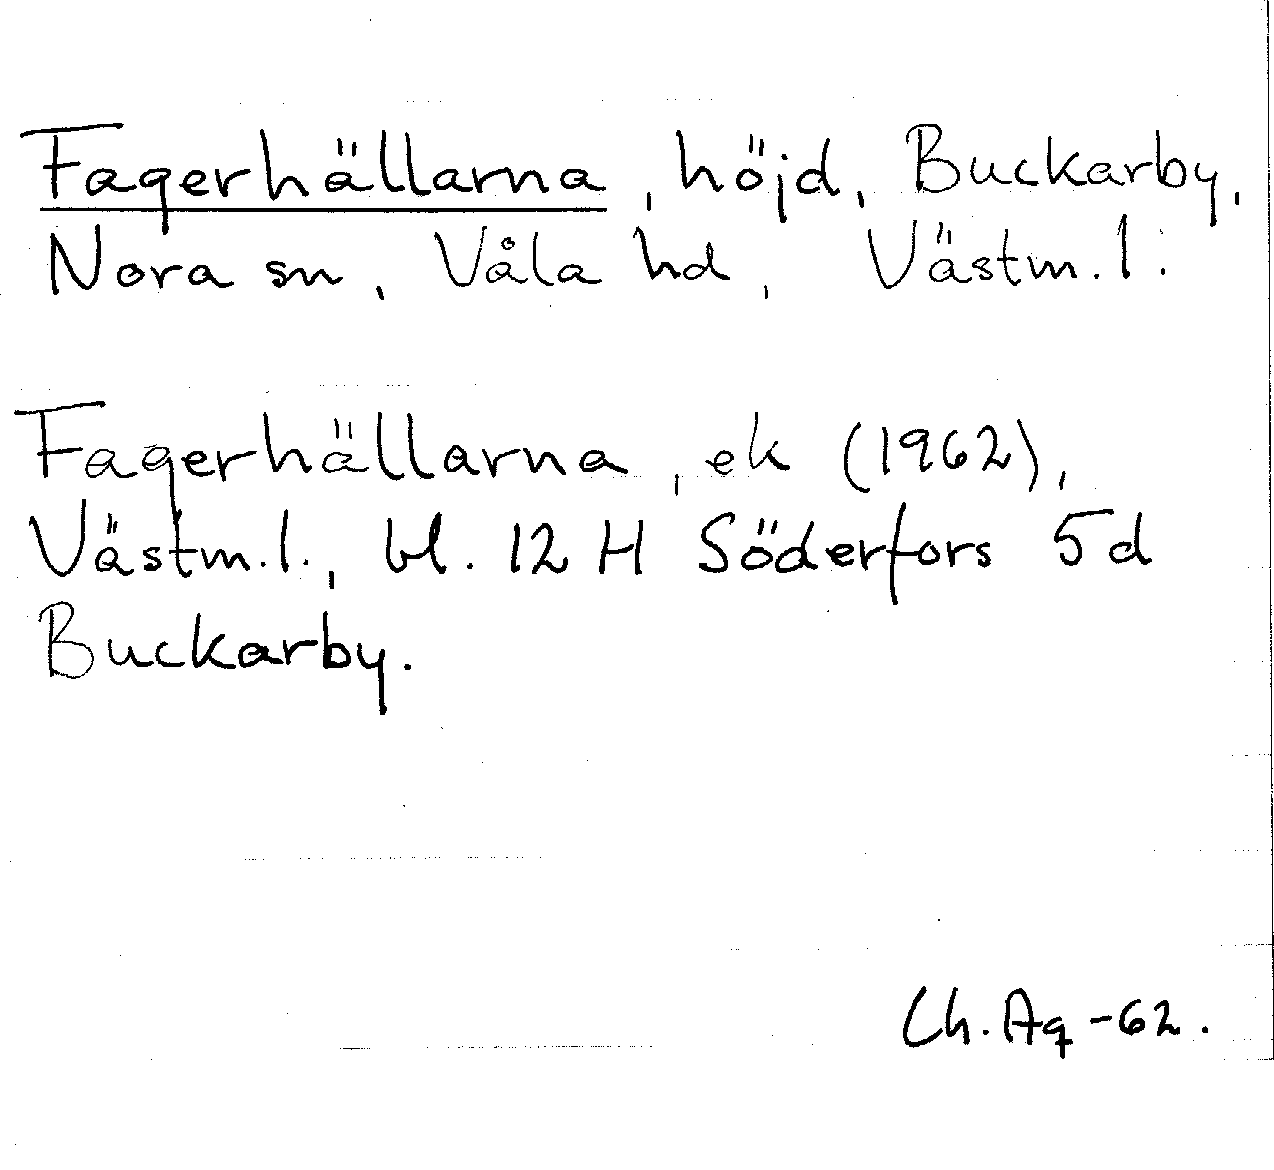 Fagerhällarna, höjd, Buckarby,
Nora sn, Våla hd, Västm.l.
Fagerhällarna, ek (1962),
Västm.l., bl. 12 H Söderfors 5d
Buckarby.
Ch. Ag -62.